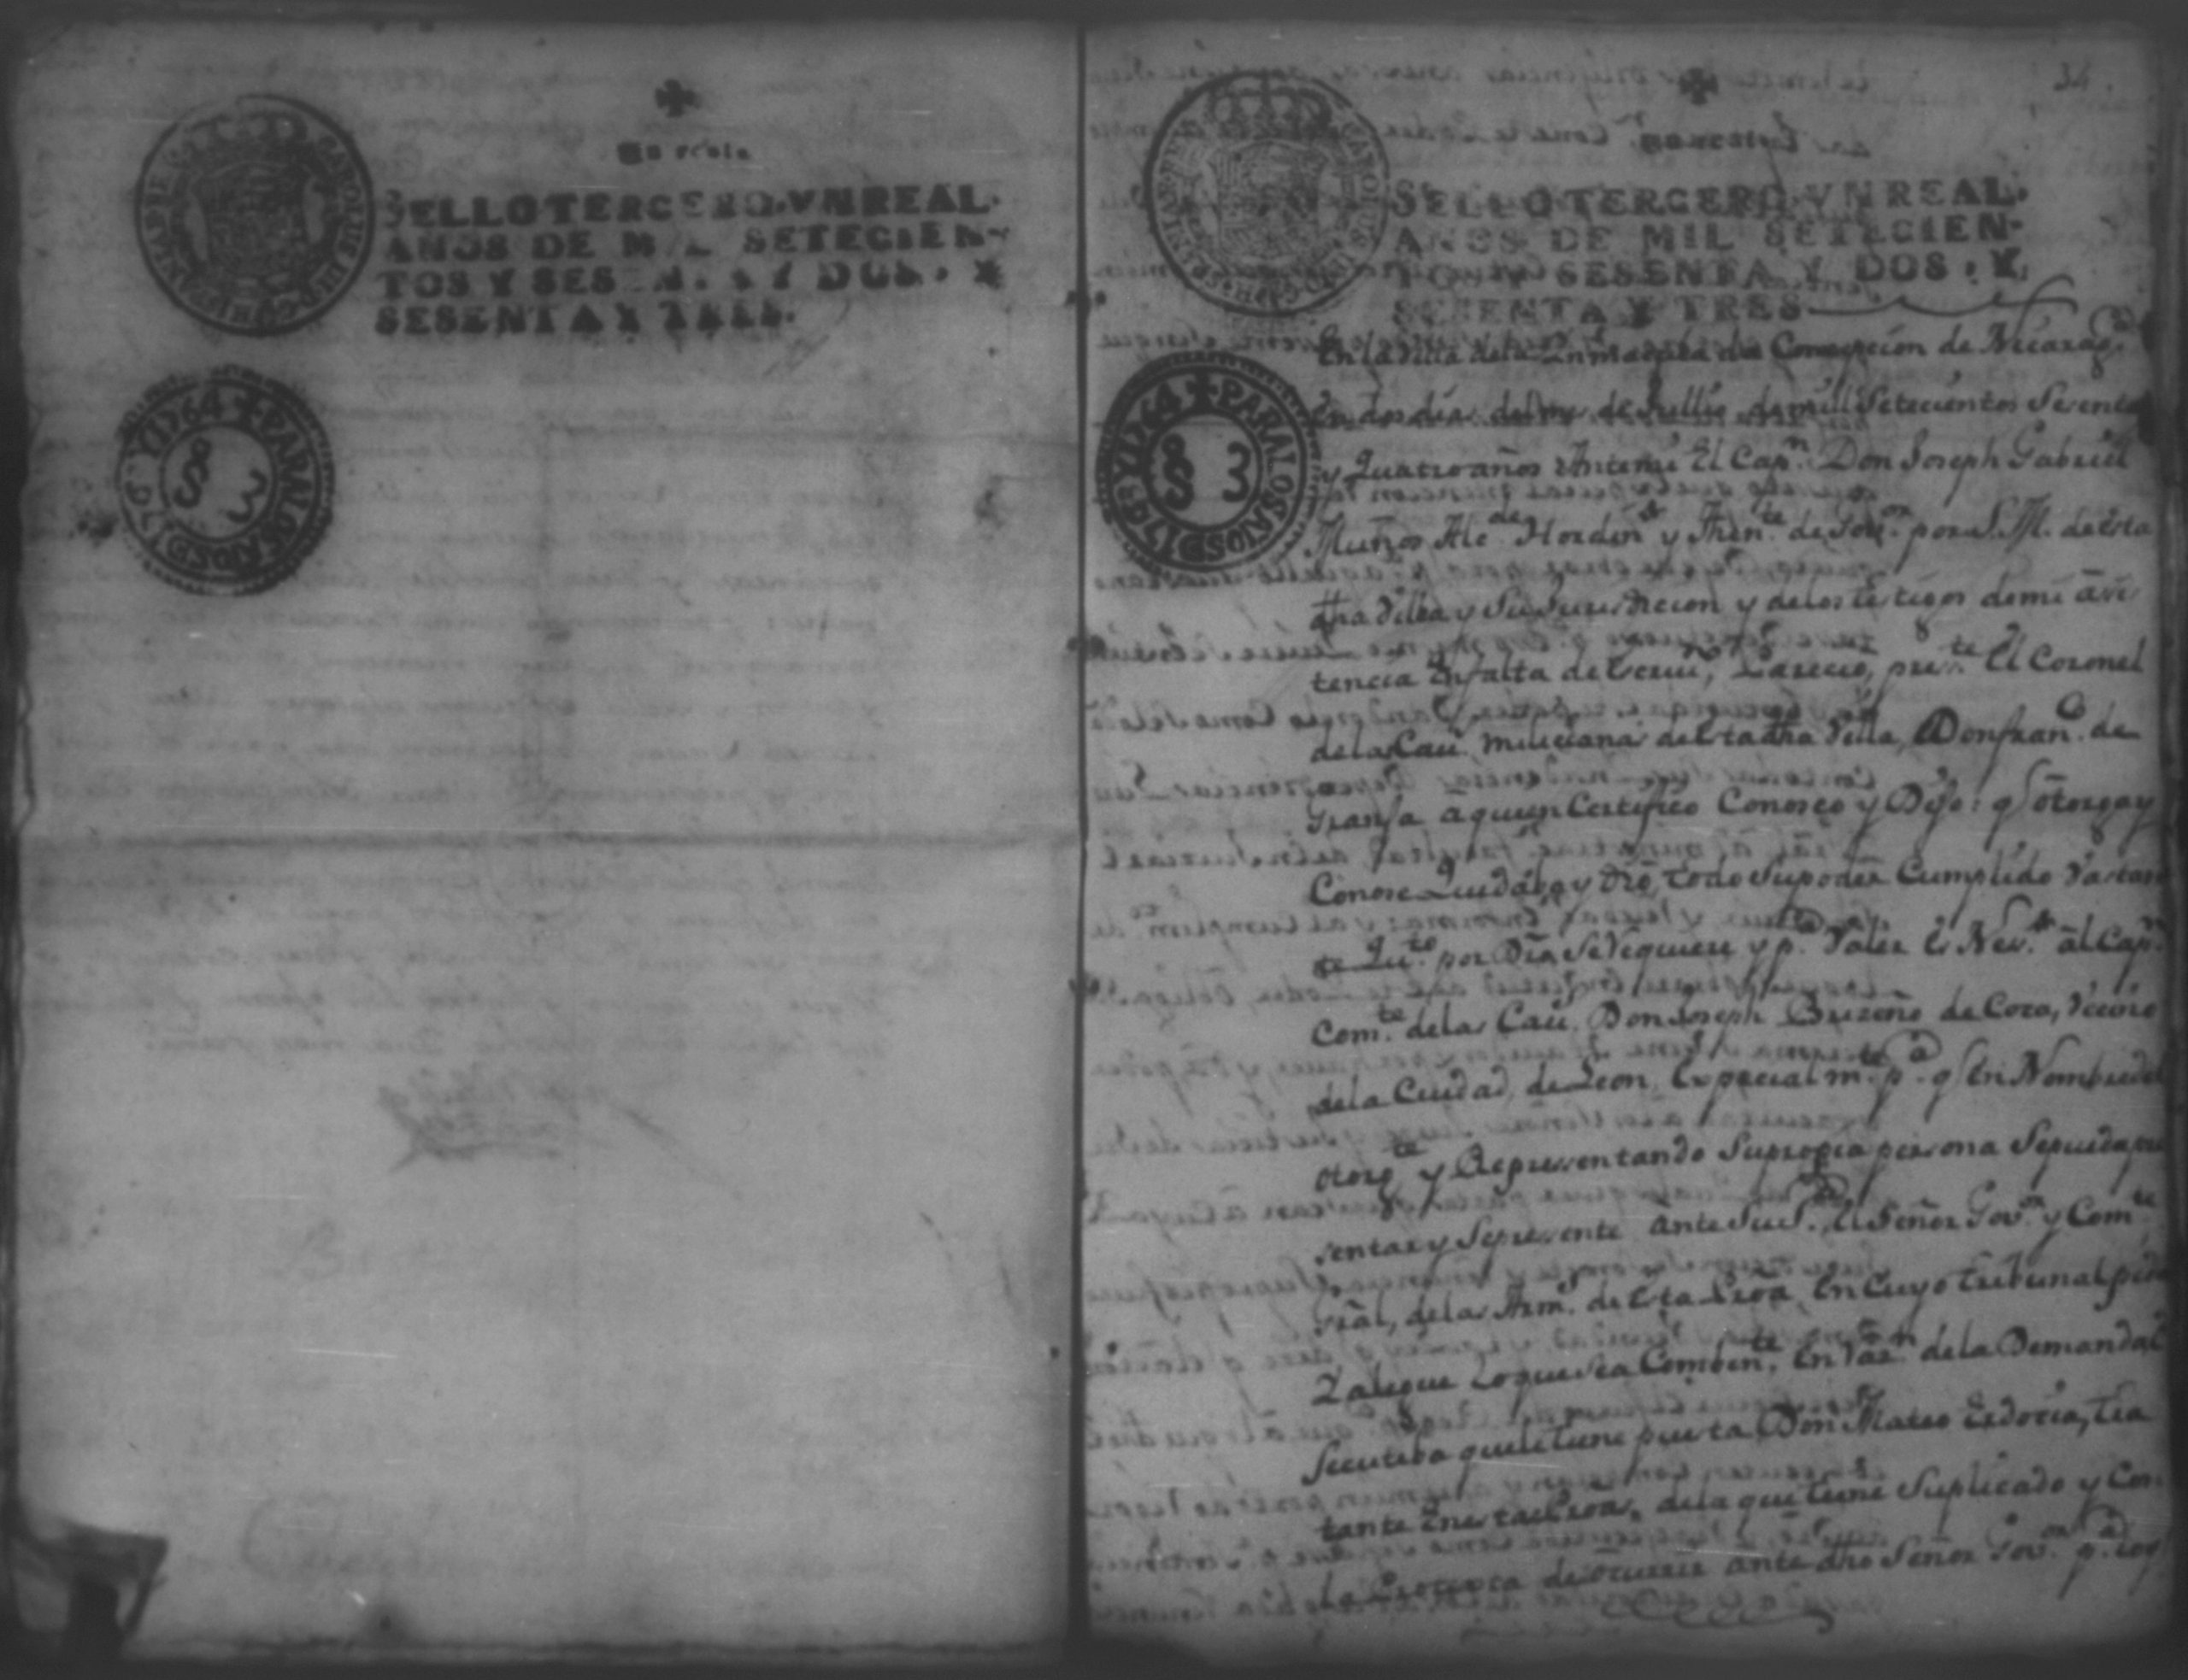 Un real
SELLO TERCERO, VN REAL,
AÑOS DE MIL SETECIEN-
TOS Y SESENTA Y DOS, Y
SESENTA Y TRES.
CAROLUS III D G HISPANIAR REX
PARA LOS AÑOS D 1763 Y 1764
S 3
34.
CAROLUS III D G HISPANIAR REX
SELLO TERCERO, VN REAL,
AÑOS DE MIL SETECIEN-
TOS Y SESENTA Y DOS, Y
SESENTA Y TRES
PARA LOS AÑOS D 1763 Y 1764
S 3
En la Villa de la Inmaculada Concepcion de Nicarag.ª
En dos dias del mes de Jullio de mill Setecientos Sesenta
y Quatro años Antemi El Cap.n Don Joseph Gabriel
Muñoz Alc.de Hordin.º y Then.te de Gov.or por S. M. de esta
dha Villa y Su Jurisdiccion y de los testigos de mi asis
tencia En falta de Escriv.no Parecio, pres.te El Coronel
de las Cav. milicianas de esta dha Villa, Don fran.co de
Granja a quien Certifico Conosco y Dijo: q otorga y
Conose Que da y dio todo Su poder Cumplido Vastan
te Qu.to por Dro Se Requiere y p.ª Valer Es Nes.º al Cap.n
Com.te de las Cav. Don Joseph Brizeño de Coca, Vecino
de la Ciudad, de Leon, Expecialm.te p.ª q En Nombre del
otorg.te y Representando Su propia persona Se pueda pre
sentar y Se presente ante Su S.ª El Señor Gov.or y Com.te
Gral, de las Arm.s de Esta Prov.ª En Cuyo tribunal pida
Y alegue Lo que Sea Comben.te En Raz.n de la Demanda E
secutiva que le tiene puesta Don Mateo
tante En esta Prov.ª, de la que tiene Suplicado y Con
la Protexta de ocurrir ante dho Señor Gov.or p.ª